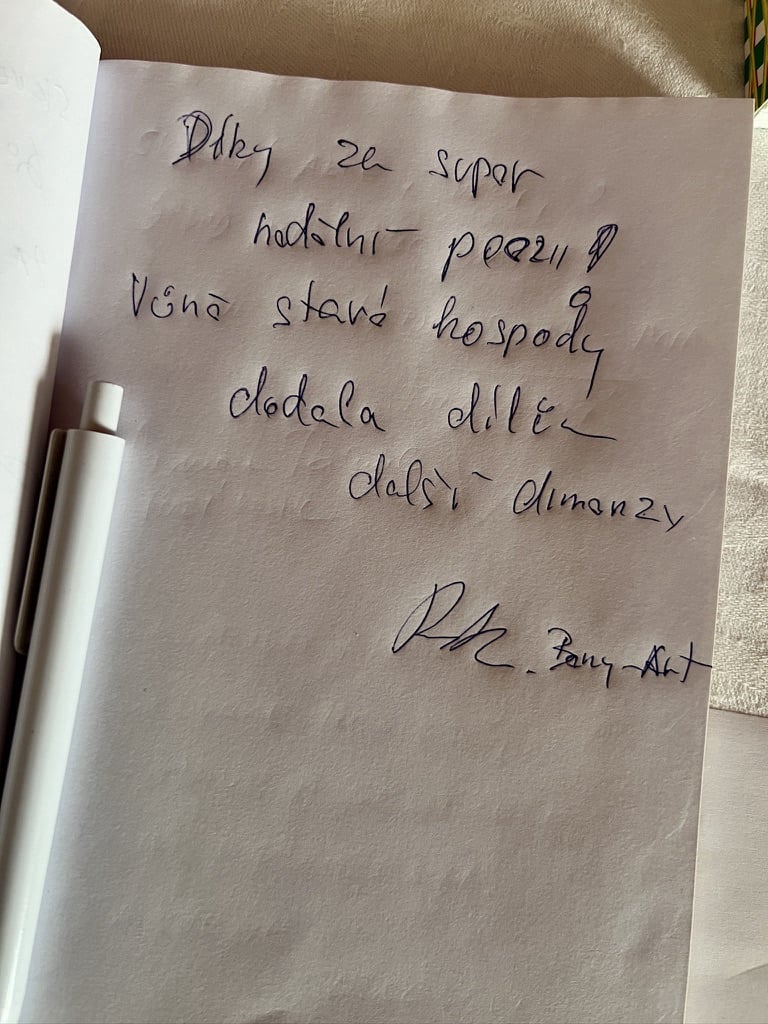 Díky za super
nedělní poezii!
Vůně staré hospody
dodala dílům
další dimenzy